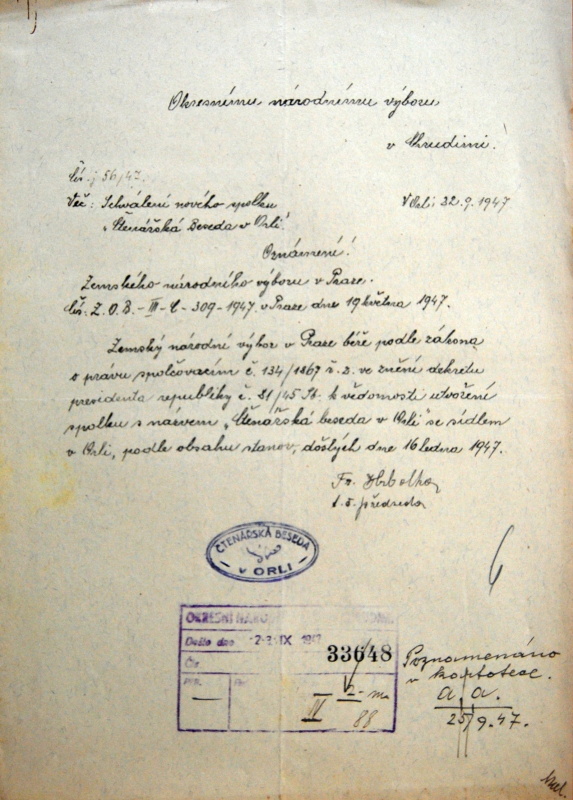 Okresnímu národnímu výboru
v Chrudimi.
čís. j 56/47.
Věc: Schválení nového spolku
V Orli: 22.9.1947
„Čtenářská Beseda v Orli“.
Oznámení!
Zemského národního výboru v Praze.
čís. Z.O.B. – III – C – 309 – 1947. v Praze dne 19 května 1947.
Zemský národní výbor v Praze béře podle zákona
o právu spolčovacím č. 134/1867 ř. z. ve znění dekretu
presidenta republiky č. 81/45 Sb. k vědomosti utvoření
spolku s názvem „Čtenářská beseda v Orli“ se sídlem
v Orli, podle obsahu stanov, došlých dne 16 ledna 1947.
Fr.
t. č. předseda
ČTENÁŘSKÁ BESEDA
V ORLI
OKRESNÍ
Došlo dne 23 IX 1947
33648
Čís.
Poznamenáno
v kartotéce.
a. a.
25/9.47.
II
2
88